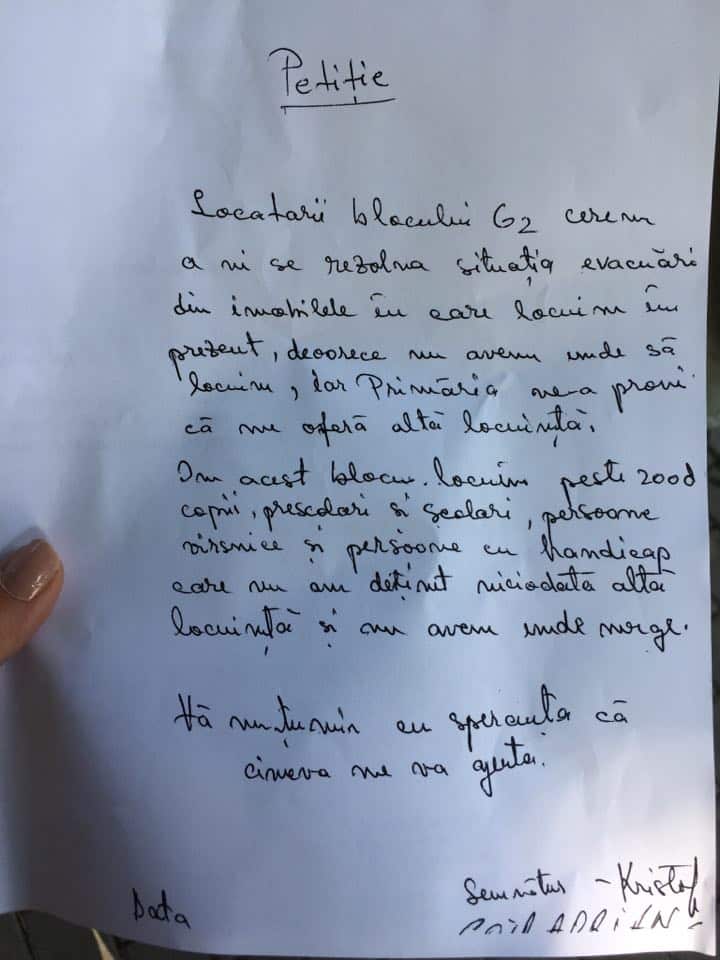 Petiție
Locatarii blocului G2 cerem
a ni se rezolva situația evacuări
din imobilele în care locuim în
prezent, deoarece nu avem unde să
locuim, iar Primăria ne-a promi
că ne oferă altă locuință.
În acest bloc locuim peste 200 d
copii, prescolari si școlari, persoane
vîrsnice și persoane cu handicap
care nu am deținut niciodată altă
locuință și nu avem unde merge.
Vă mulțumim cu speranța că
cineva ne va ajuta.
Data
Semnătur - Kristof
ADRIAN